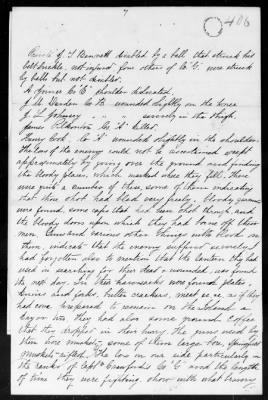 7
406
Private G. T. Bennett disabled by a ball that struck his
belt buckle, not injured four others of Co "G" were struck
by balls but not disabled.
A Jones Co "C" shoulder dislocated.
J. W. Darden Co wounded slightly on the knee
J. L. Johnsey " " severely in the thigh.
James Co "A" killed.
Henry Cook, Co "A" wounded slightly in the shoulder.
The loss of the enemy could not be ascertained except
approximately by going over the ground and finding
the bloody places, which marked where they fell. There
were quite a number of these, some of them indicating
that those shot had bled very freely. Bloody
were found, some caps that had been shot through, and
the blinds down upon which they had borne off their
men. These and various other things with blood on
them, indicate that the enemy suffered severely.
I had forgotten also to mention that the lantern they had
used in searching for their dead & wounded, was found
the next day. In their haversacks were found plates,
knives and forks, butter crackers, meat &c &c, as if they
had come prepared to remain on the Island, a
day or two they had also some ground coffee
that they dropped in their hurry. The guns used by
them were muskets; some of them large bore, Springfield
muskets rifled. The loss on our side particularly in
the ranks of Capt Crawfords Co G and the length
of time they were fighting show with what bravery